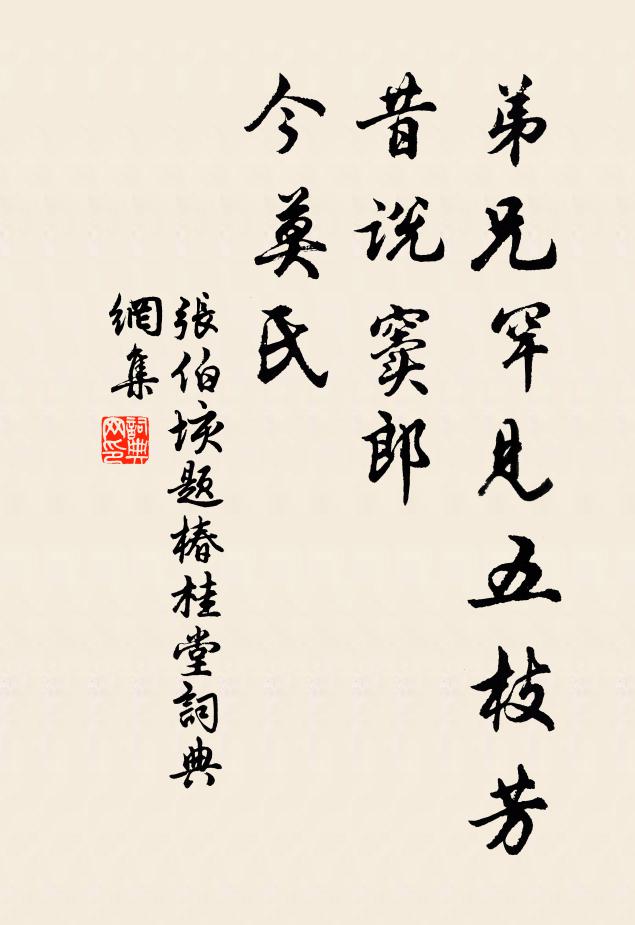 弟兄罕見五枝芳
昔說竇郎
今莫氏
張伯垓題椿桂堂詞典
網集
詞典
网印